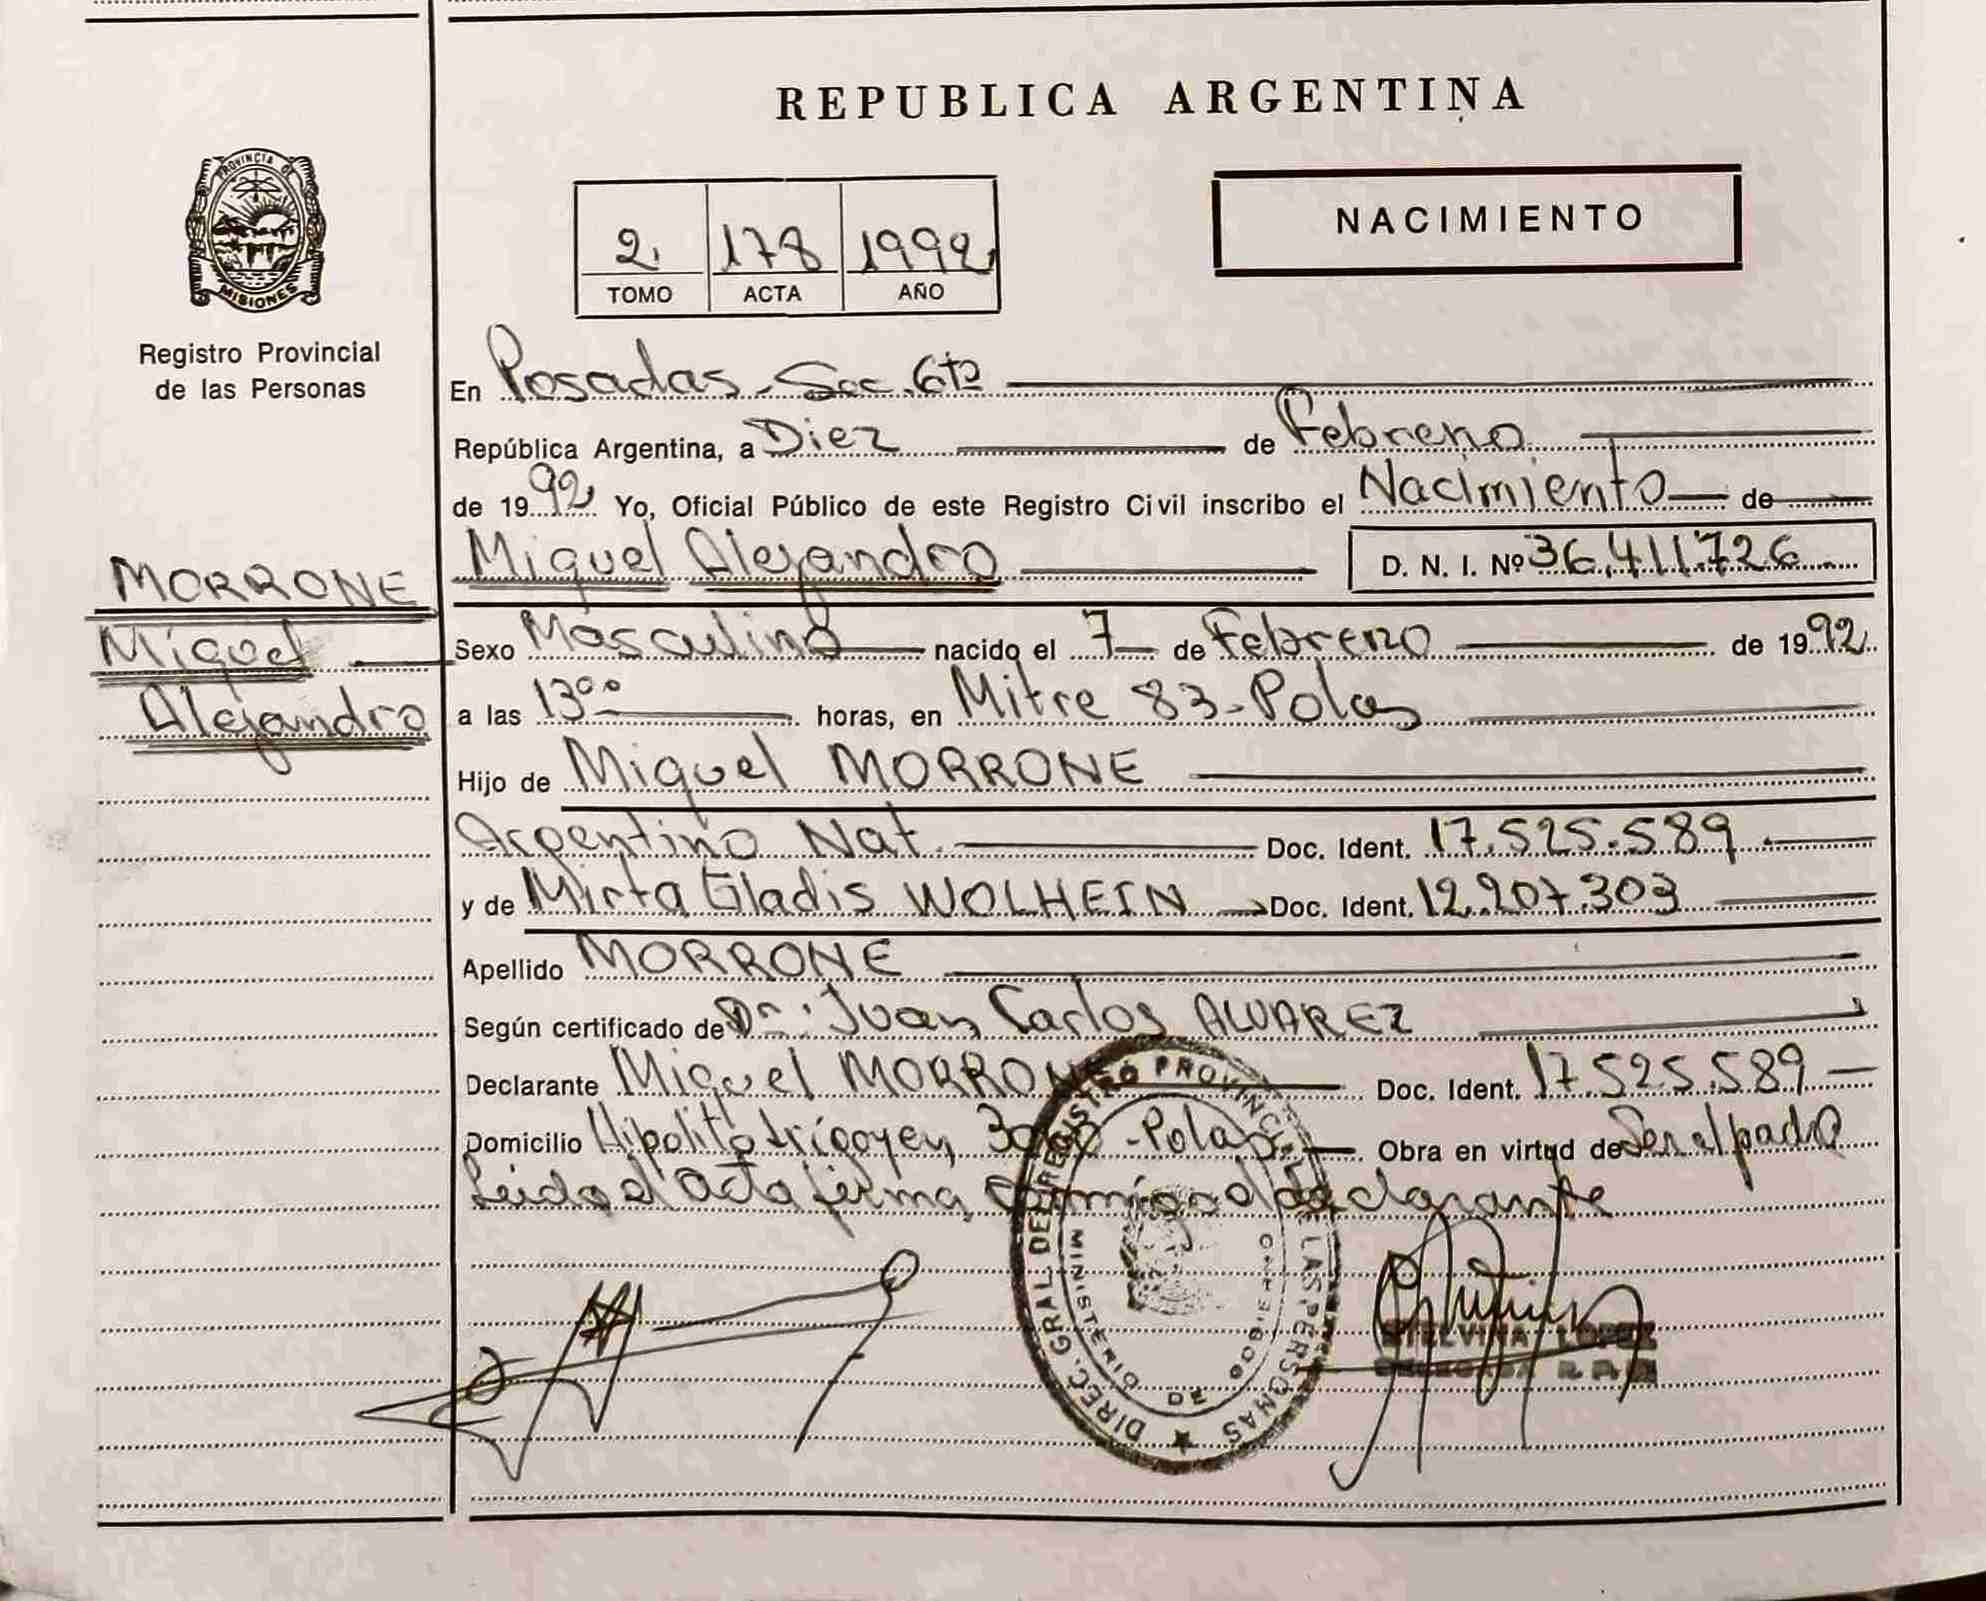 REPUBLICA ARGENTINA
PROVINCIA DE
MISIONES
Registro Provincial
de las Personas
2 178 1992
TOMO ACTA AÑO
NACIMIENTO
En Posadas - Sec. 6ta
República Argentina, a Diez de Febrero
de 1992 Yo, Oficial Público de este Registro Civil inscribo el Nacimiento de
Miguel Alejandro D. N. I. Nº 36.411.726
MORRONE
Miguel
Alejandro
Sexo Masculino nacido el 7 de Febrero de 1992
a las 13°° horas, en Mitre 83 - Pdas
Hijo de Miguel MORRONE
Argentino Nat. Doc. Ident. 17.525.589
y de Mirta Gladis WOLHEIN Doc. Ident. 12.207.303
Apellido MORRONE
Según certificado de Dr. Juan Carlos ALVAREZ
Declarante Miguel MORRONE Doc. Ident. 17.525.589
Domicilio Hipolito Irigoyen - Pdas Obra en virtud de Ser el padre
Leida el Acta firma conmigo el declarante
DIREC. GRAL. DEL REGISTRO PROVINCIAL DE LAS PERSONAS
MINISTERIO DE GOBIERNO
LOPEZ